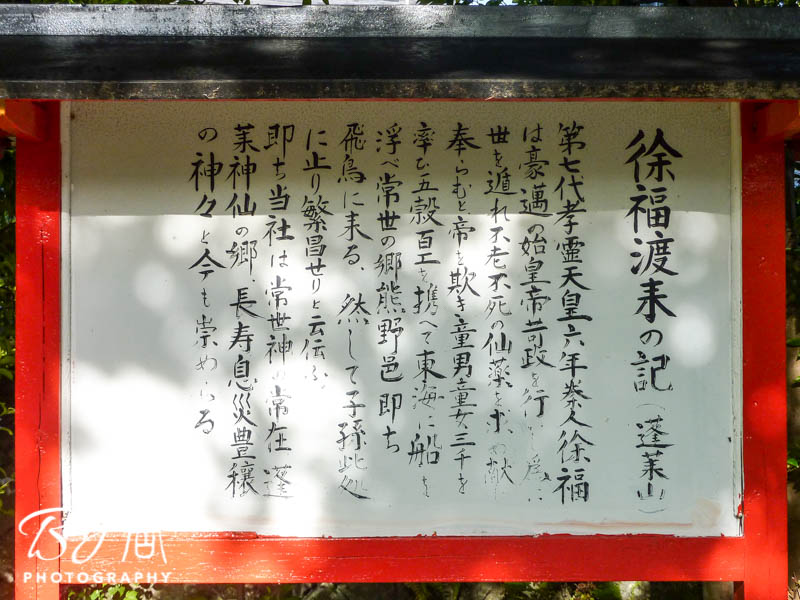 徐福渡来の記(蓬莱山)
第七代孝霊天皇六年秦人徐福
は豪邁の始皇帝苛政を行い為に
世を遁れ不老不死の仙薬を求め献
奉らむと帝を欺き童男童女三千を
率ひ五穀百工を携へて東海に船を
浮べ常世の郷熊野邑即ち
飛鳥に来る、然して子孫此処
に止り繁昌せりと云伝ふ
即ち当社は常世神の常在蓬
莱神仙の郷、長寿息災豊穣
の神々と今も崇めらる
PHOTOGRAPHY